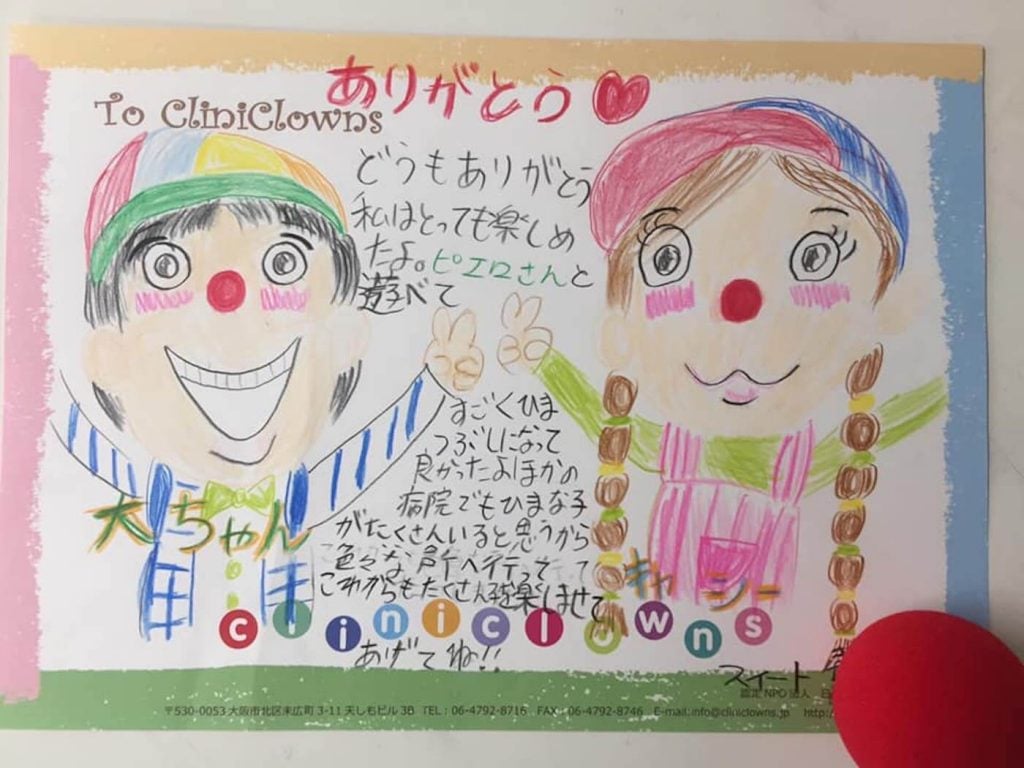 ありがとう
To CliniClowns
どうもありがとう
私はとっても楽しめ
たよ。ピエロさんと
遊べて
すごくひま
つぶしになって
良かったよほかの
病院でもひまな子
がたくさんいると思うから
色々な所へ行って
これからもたくさん楽しませて
あげてね!!
大ちゃん
キャシー
cliniclowns
スイート
認定NPO法人
〒530-0053 大阪市北区末広町 3-11 天しもビル 3B TEL:06-4792-8716 FAX:06-4792-8746 E-mail:info@cliniclowns.jp http:/